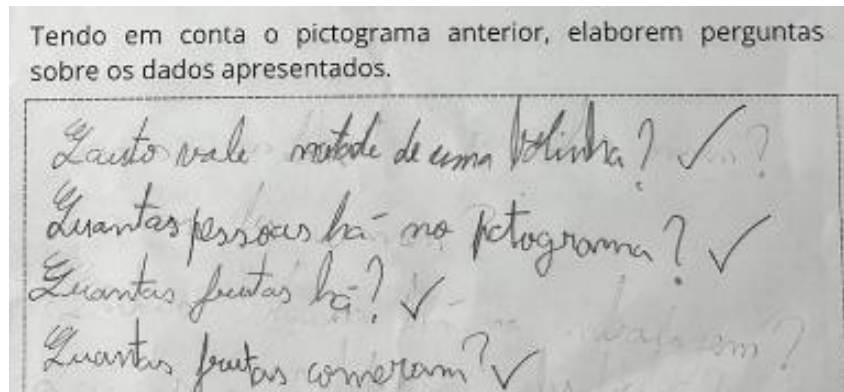 Tendo em conta o pictograma anterior, elaborem perguntas
sobre os dados apresentados.
Quanto vale metade de uma bolinha? ✓
Quantas pessoas há no pctograma? ✓
Quantas frutas há? ✓
Quantas frutas comeram? ✓